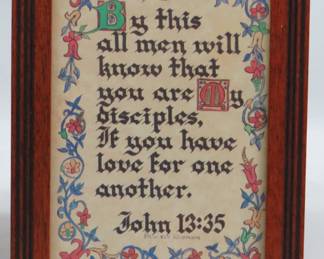 By this
all men will
know that
you are My
disciples,
If you have
love for one
another.
John 13:35